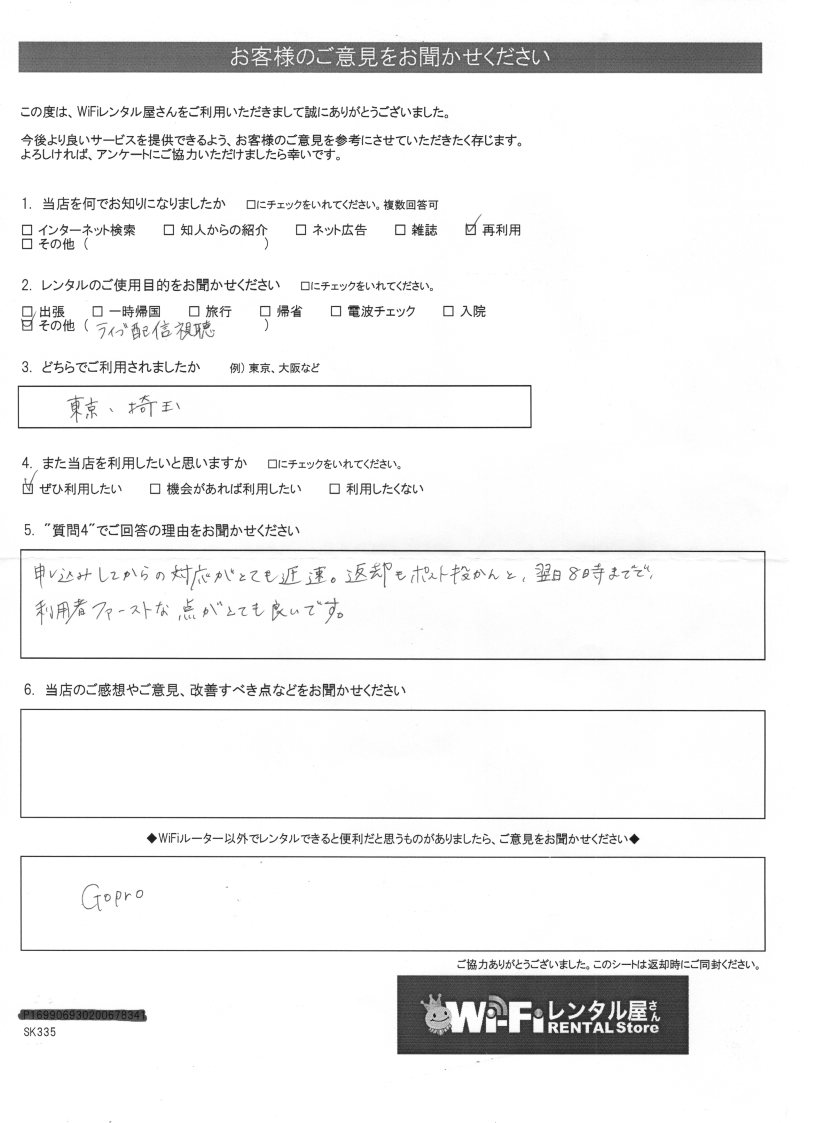 お客様のご意見をお聞かせください
この度は、WiFiレンタル屋さんをご利用いただきまして誠にありがとうございました。
今後より良いサービスを提供できるよう、お客様のご意見を参考にさせていただきたく存じます。
よろしければ、アンケートにご協力いただけましたら幸いです。
1. 当店を何でお知りになりましたか　□にチェックをいれてください。複数回答可
□ インターネット検索　□ 知人からの紹介　□ ネット広告　□ 雑誌　☑ 再利用
□ その他（　　　　　　　　）
2. レンタルのご使用目的をお聞かせください　□にチェックをいれてください。
□ 出張　□ 一時帰国　□ 旅行　□ 帰省　□ 電波チェック　□ 入院
☑ その他（ ライブ配信視聴　　　）
3. どちらでご利用されましたか　例）東京、大阪など
東京、埼玉
4. また当店を利用したいと思いますか　□にチェックをいれてください。
☑ ぜひ利用したい　□ 機会があれば利用したい　□ 利用したくない
5. "質問4"でご回答の理由をお聞かせください
申し込みしてからの対応がとても迅速。返却もポスト投かんと、翌日8時までで、
利用者ファーストな点がとても良いです。
6. 当店のご感想やご意見、改善すべき点などをお聞かせください
◆WiFiルーター以外でレンタルできると便利だと思うものがありましたら、ご意見をお聞かせください◆
Gopro
ご協力ありがとうございました。このシートは返却時にご同封ください。
Wi-Fi レンタル屋さん
RENTAL Store
SK335